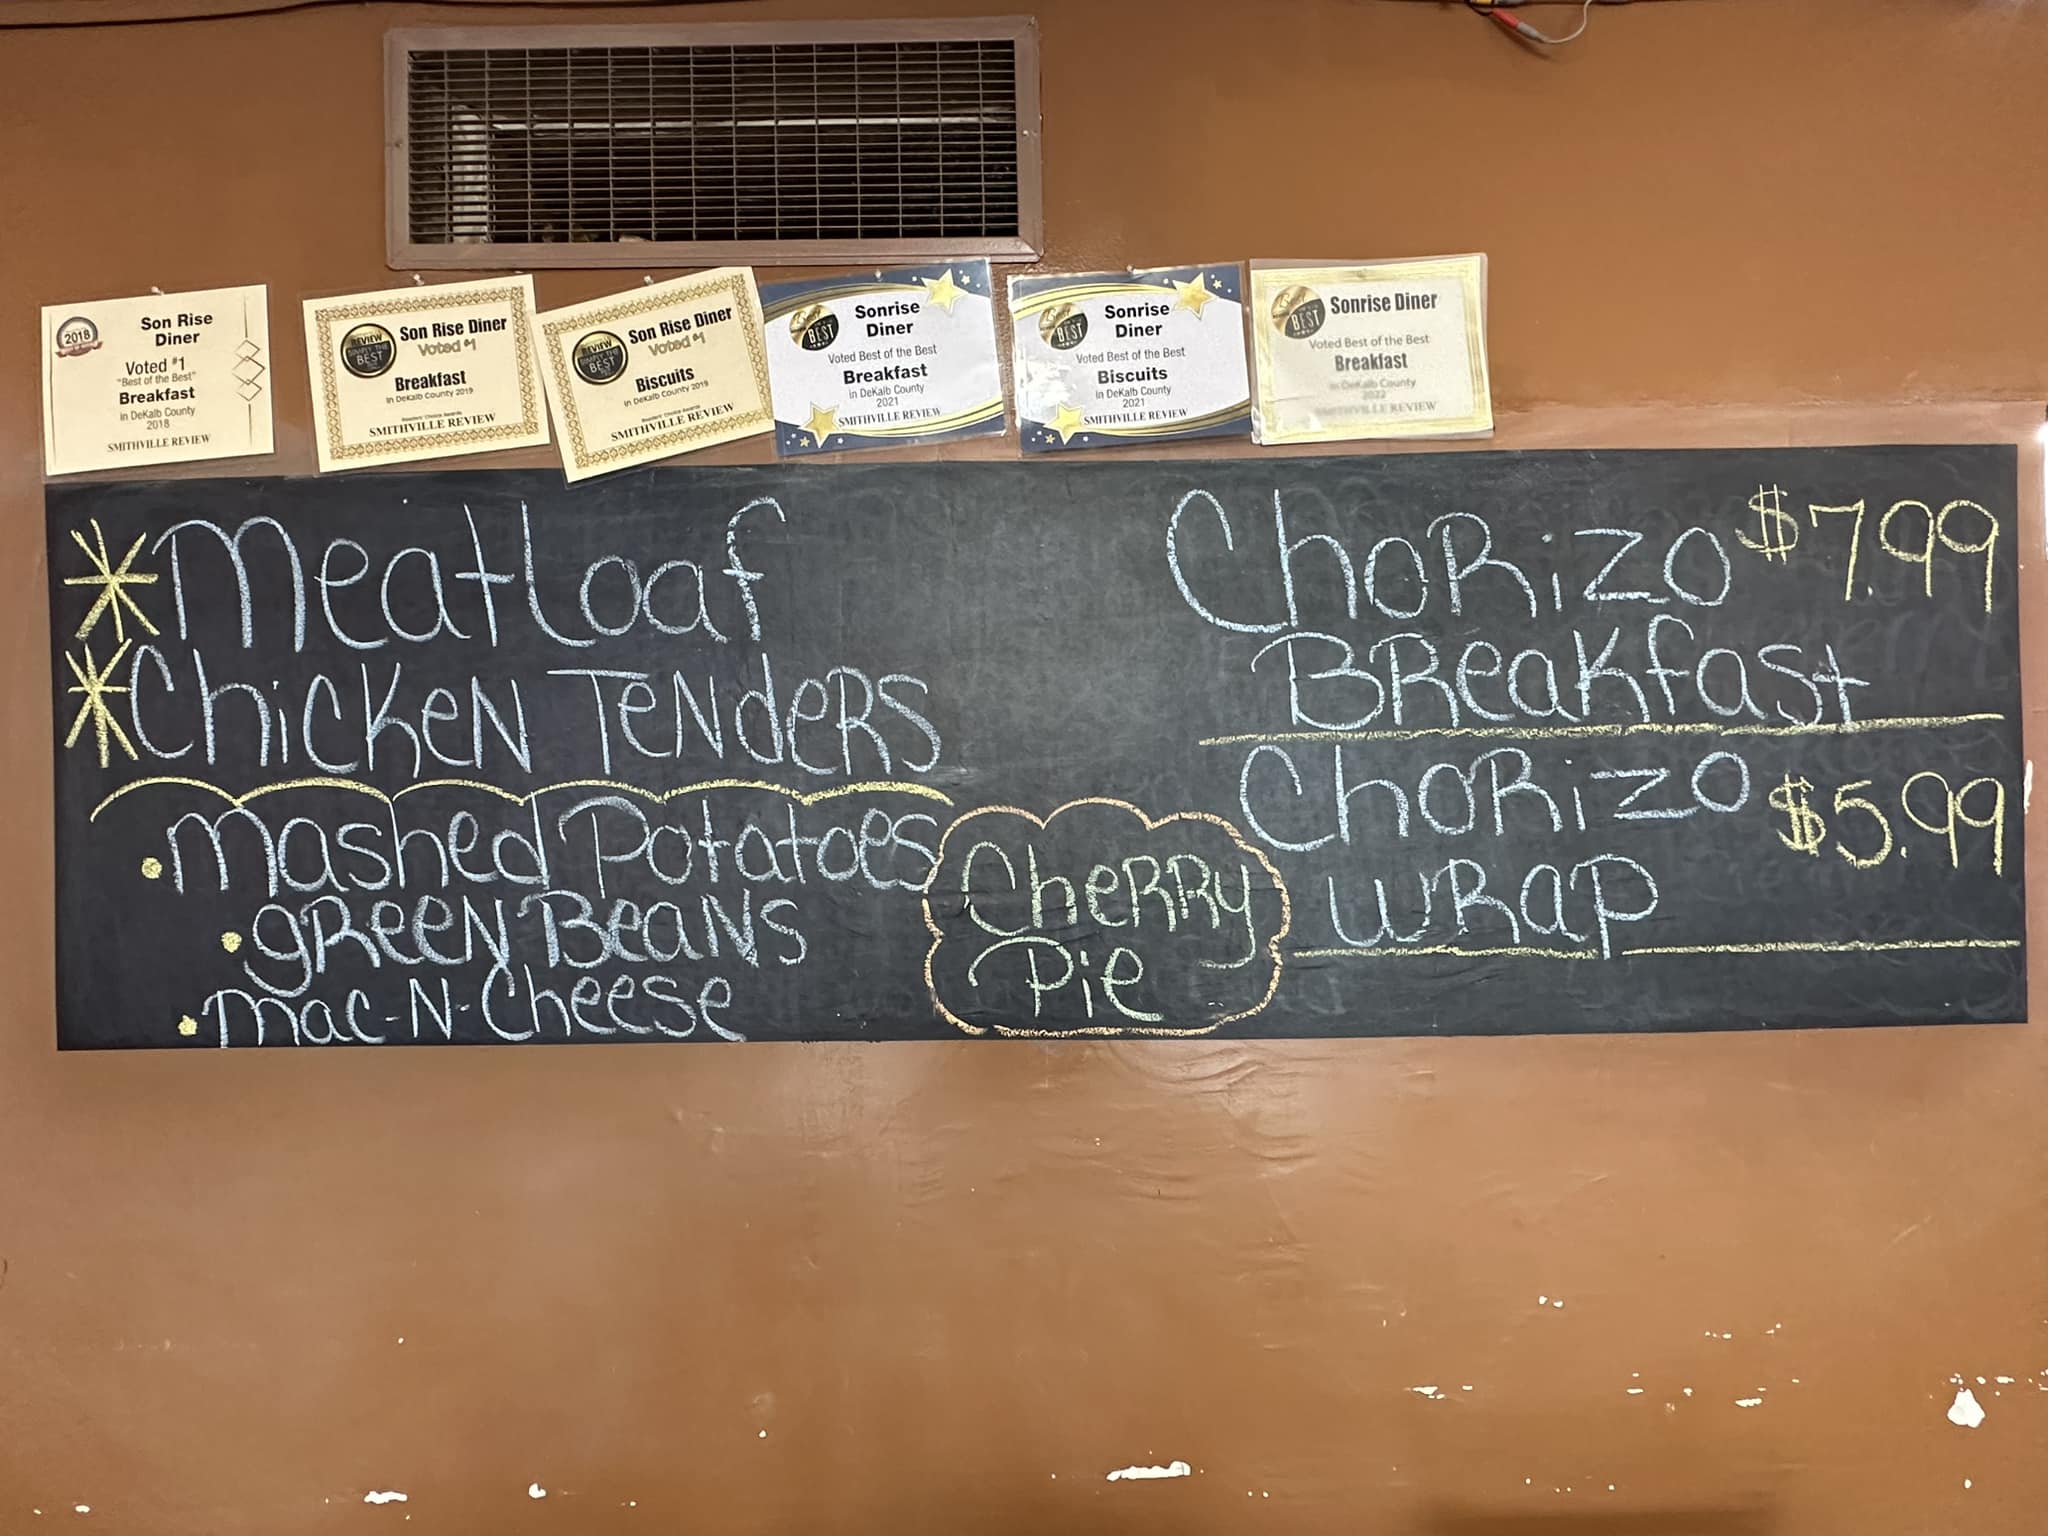 2018
Son Rise
Diner
Voted #1
"Best of the Best"
Breakfast
in DeKalb County
2018
SMITHVILLE REVIEW
REVIEW
SIMPLY THE
BEST
Son Rise Diner
Voted #1
Breakfast
in DeKalb County 2019
Readers' Choice Awards
SMITHVILLE REVIEW
REVIEW
SIMPLY THE
BEST
Son Rise Diner
Voted #1
Biscuits
in DeKalb County 2019
Readers' Choice Awards
SMITHVILLE REVIEW
BEST
Sonrise
Diner
Voted Best of the Best
Breakfast
in DeKalb County
2021
SMITHVILLE REVIEW
BEST
Sonrise
Diner
Voted Best of the Best
Biscuits
in DeKalb County
2021
SMITHVILLE REVIEW
BEST
Sonrise Diner
Voted Best of the Best
Breakfast
in DeKalb County
2022
SMITHVILLE REVIEW
*Meatloaf
*Chicken Tenders
•Mashed Potatoes
•green Beans
•Mac-N-Cheese
Cherry
Pie
Chorizo $7.99
Breakfast
Chorizo $5.99
Wrap